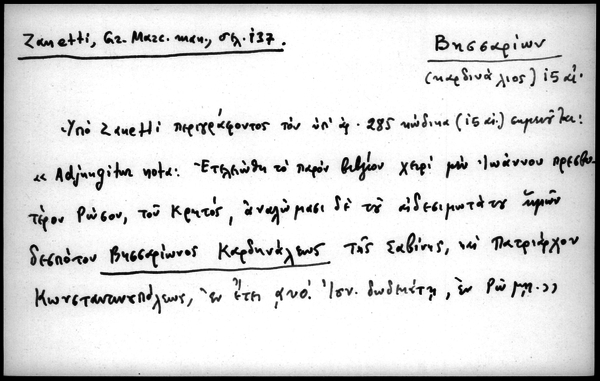 Zanetti, Gr. Marc. man., σελ. 137.
Βησσαρίων
(καρδινάλιος) 15 αἰ.
Ὑπό Zanetti περιγράφοντος τόν ὑπ' ἀρ. 285 κώδικα (15 αἰ.) σημειοῦται:
« Adjungitur nota: Ἐτελειώθη τό παρόν βιβλίον χειρί μέν Ἰωάννου πρεσβυ-
τέρου Ρώσου, τοῦ Κρητός, ἀναλώμασι δέ τοῦ αἰδεσιμωτάτου ἡμῶν
δεσπότου Βησσαρίωνος Καρδηνάλεως τῆς Σαβίνης, καί Πατριάρχου
Κωνσταντινουπόλεως, ἐν ἔτει ͵αυο΄. Ἰουν. δωδεκάτῃ, ἐν Ρώμῃ.»